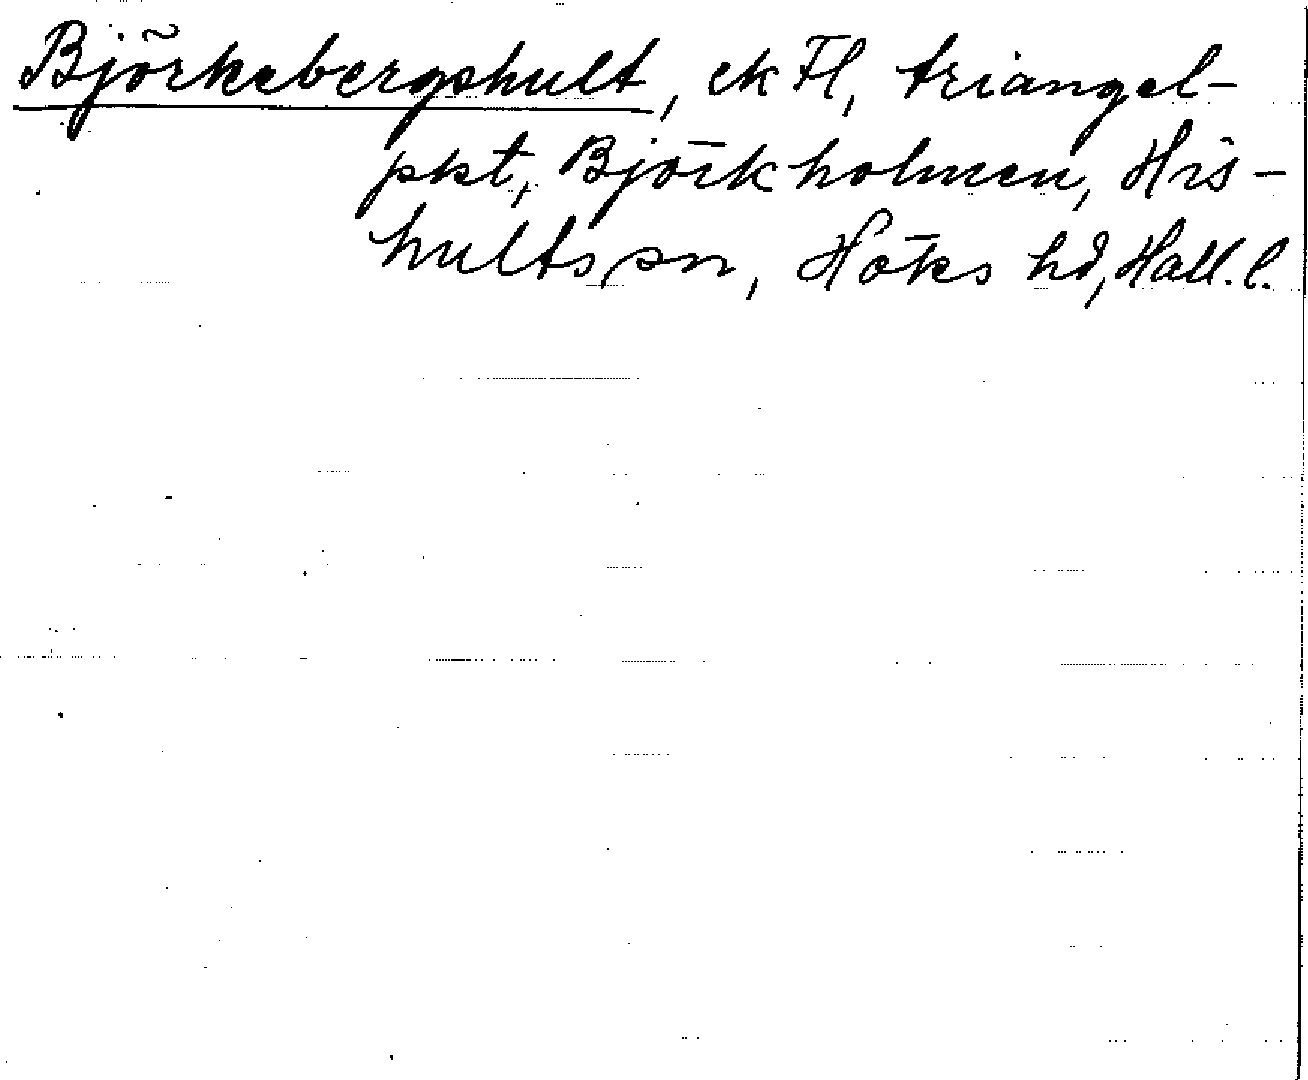 Björkebergshult, ek Fl, triangel-
pkt, Björkholmen, His-
hults sn, Höks hd, Hall. l.